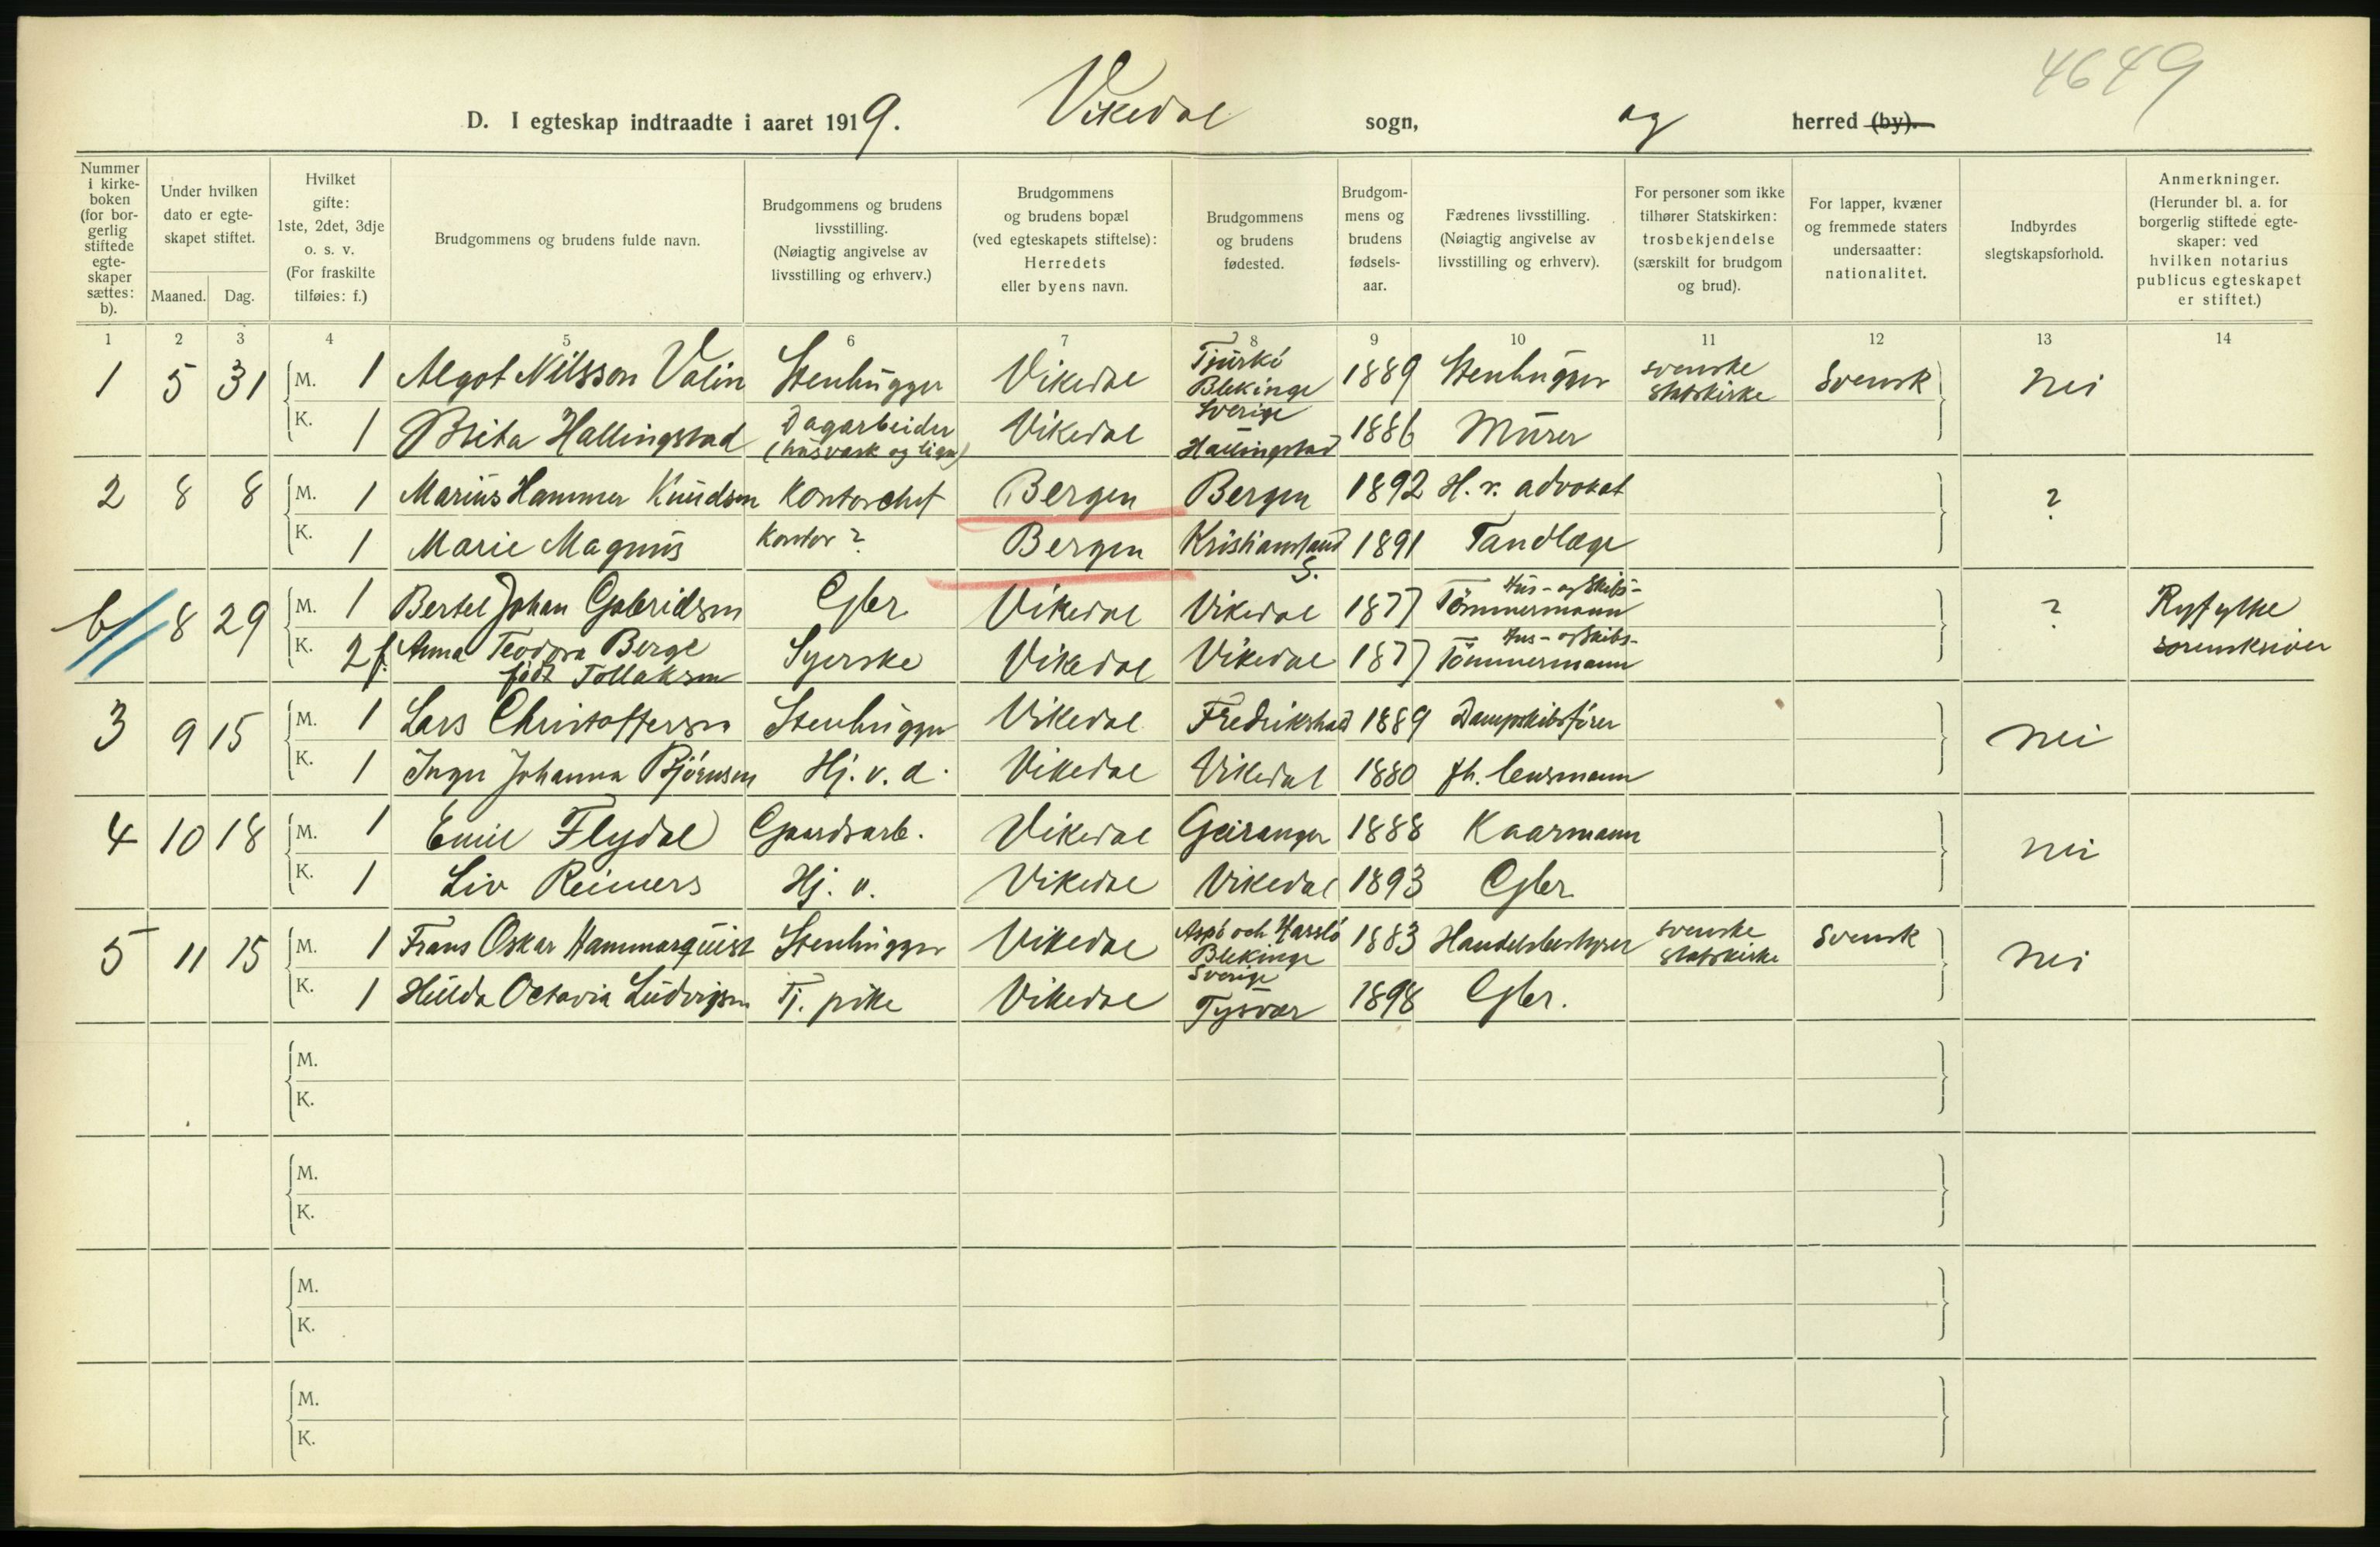 4649
D. I egteskap indtraadte i aaret 1919. Vikedal sogn, og herred (by).
Nummer i kirkeboken (for borgerlig stiftede egteskaper sættes: b).
Under hvilken dato er egteskapet stiftet.
Maaned. Dag.
Hvilket gifte: 1ste, 2det, 3dje o. s. v. (For fraskilte tilføies: f.)
Brudgommens og brudens fulde navn.
Brudgommens og brudens livsstilling. (Nøiagtig angivelse av livsstilling og erhverv.)
Brudgommens og brudens bopæl (ved egteskapets stiftelse): Herredets eller byens navn.
Brudgommens og brudens fødested.
Brudgommens og brudens fødselsaar.
Fædrenes livsstilling. (Nøiagtig angivelse av livsstilling og erhverv).
For personer som ikke tilhører Statskirken: trosbekjendelse (særskilt for brudgom og brud).
For lapper, kvæner og fremmede staters undersaatter: nationalitet.
Indbyrdes slegtskapsforhold.
Anmerkninger. (Herunder bl. a. for borgerlig stiftede egteskaper: ved hvilken notarius publicus egteskapet er stiftet.)
1 2 3 4 5 6 7 8 9 10 11 12 13 14
1 5 31 M. 1 Algot Nilsson Valin Stenhugger Vikedal Tjurkö Blekinge Sverige 1889 Stenhugger svenske statskirke Svensk nei
K. 1 Brita Hallingstad Dagarbeider (husvask og lign) Vikedal Hallingstad 1886 Murer
2 8 8 M. 1 Marius Hammer Knudsen Kontorchef Bergen Bergen 1892 H. r. advokat ?
K. 1 Marie Magnus Kontor ? Bergen Kristiansand S. 1891 Tandlæge
b 8 29 M. 1 Bertel Johan Gabridsen Gbr Vikedal Vikedal 1877 Hus- og Skibs- Tømmermann ? Ryfylke sorenskriver
K. 2 f. Anna Teodora Berge født Tollaksen Syerske Vikedal Vikedal 1877 Hus- og Skibs- Tømmermann
3 9 15 M. 1 Lars Christoffersen Stenhugger Vikedal Fredrikstad 1889 Dampskibsfører nei
K. 1 Inger Johanna Bjørnsen Hj. v. d. Vikedal Vikedal 1880 fh. lensmann
4 10 18 M. 1 Emil Flydal Gaardsarb. Vikedal Geiranger 1888 Kaarmann nei
K. 1 Liv Reimers Hj. v. Vikedal Vikedal 1893 Gbr
5 11 15 M. 1 Frans Oskar Hammarquist Stenhugger Vikedal Aspö och Hasslö Blekinge Sverige 1883 Handelsbestyrer svenske statskirke Svensk nei
K. 1 Hulda Octavia Ludvigsen Tj. pike Vikedal Tysvær 1898 Gbr.
M.
K.
M.
K.
M.
K.
M.
K.